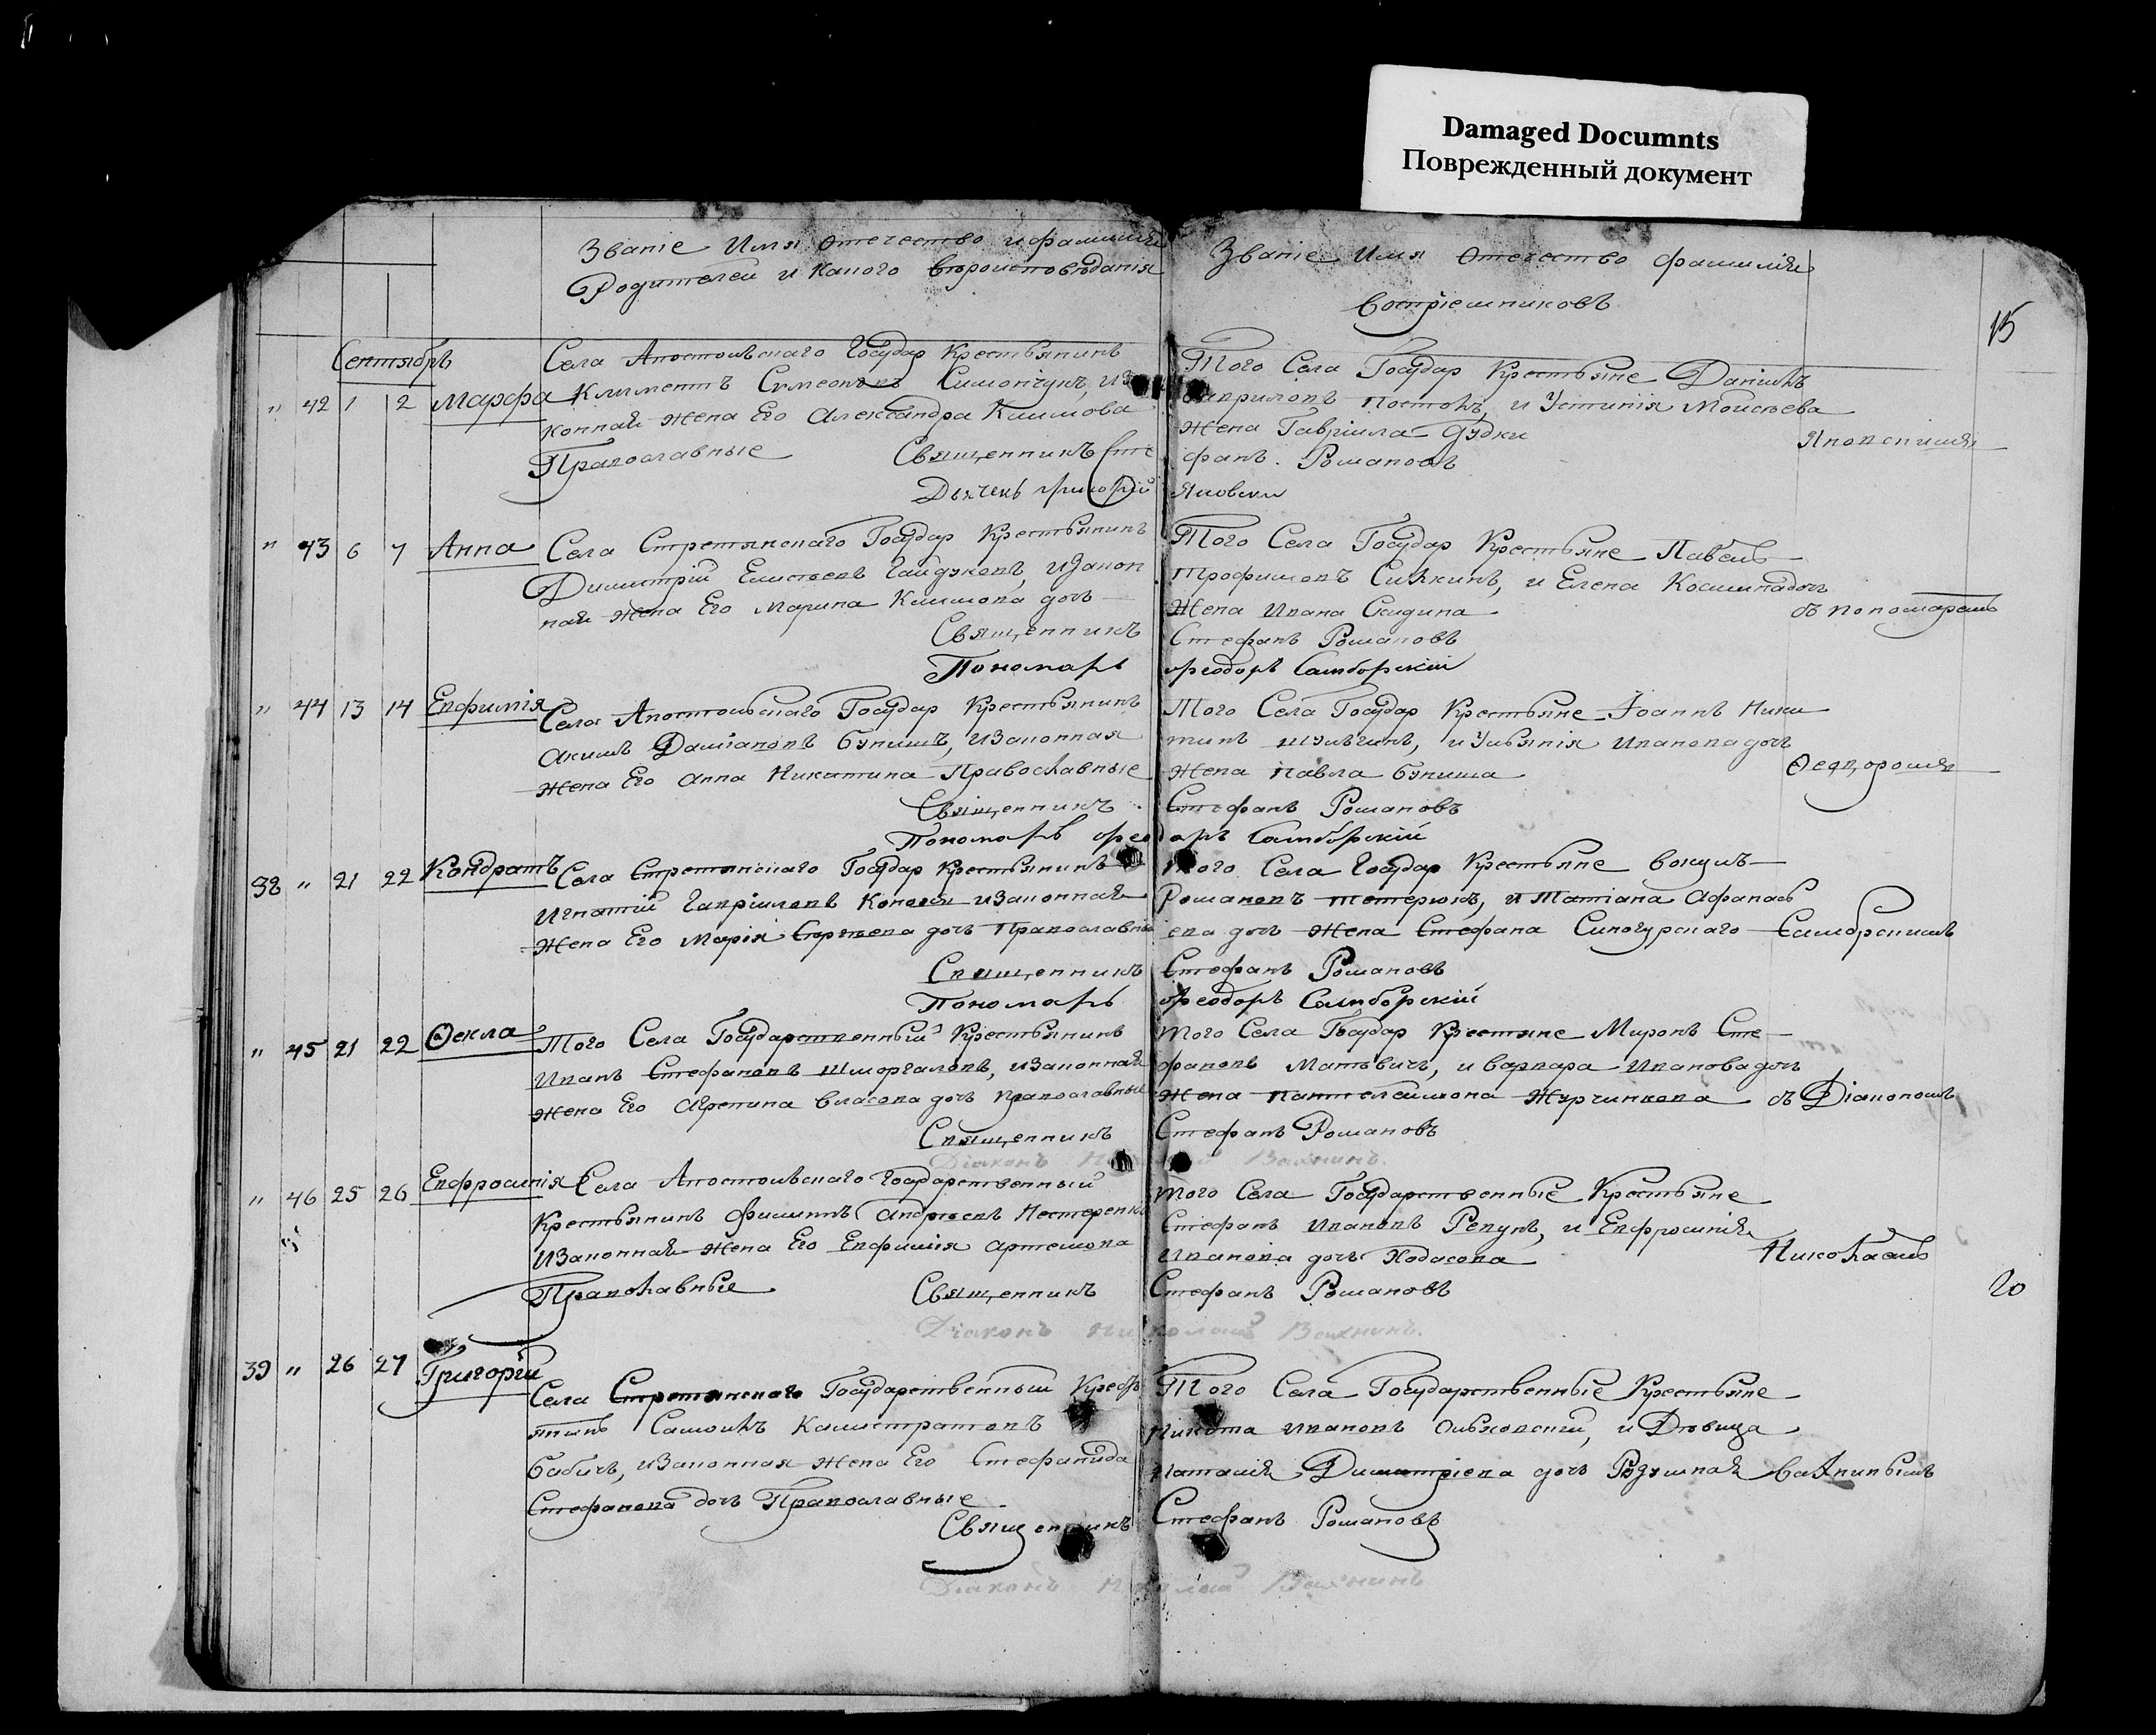 Damaged Documnts
Поврежденный документ
Званіе Имя Отечество и фамилія
Родителей и какого вѣроисповѣданія
Званіе Имя Отечество фамилія
востріемниковъ
15
Сентябрь
" 42 1 2 Марфа
Села Апостольскаго Государ Крестьянинъ
Климентъ Симоничукъ, из
конная жена Его Александра Климова
Православные Священникъ Сте
Дьячекъ Григорій
Того Села Государ Крестьяне Даніилъ
и Устинія Моисѣева
жена Гавріила Дудки
фанъ Романовъ
" 43 6 7 Анна
Села Стретянскаго Государ Крестьянинъ
Димитрій Елисѣевъ Гайдуковъ, изакон
ная жена Его Марина Климова дочь
Священникъ
Пономаръ
Того Села Государ Крестьяне Павелъ
Трофимовъ и Елена
жена Ивана
съ пономаремъ
Стефанъ Романовъ
Феодоръ Самборскій
" 44 13 14 Евфимія
Села Апостольскаго Государ Крестьянинъ
Акимъ Даміановъ изаконная
жена Его Анна Никитина Православные
Священникъ
Пономаръ Фео
Того Села Государ Крестьяне Іоаннъ Ники
тинъ и Ульянія Иванова дочь
жена Павла
Стефанъ Романовъ
доръ Самборскій
38 " 21 22 Кондратъ
Села Стретянскаго Государ Крестьянинъ
Игнатій Гавріиловъ изаконная
жена Его Марія Сергѣева дочь Православны
Священникъ
Пономаръ
того Села Государ Крестьяне
Романовъ Тетерюкъ, и Татіана Афанась
ева дочь жена Стефана Синогурскаго
Стефанъ Романовъ
Феодоръ Самборскій
" 45 21 22 Ѳекла
Того Села Государственный Крестьянинъ
Иванъ Стефановъ Шморгаловъ, изаконная
жена Его Агрепина Власова дочь православные
Священникъ
Діаконъ
того Села Государ Крестяне Миронъ Сте
фановъ Матвичъ, и Варвара Иванова дочь
жена Пантелеимона Журчинкова съ Діакономъ
Стефанъ Романовъ
" 46 25 26 Евфросинія
Села Апостольскаго Государственный
Крестьянинъ Филиппъ Андреевъ Нестеренко
изаконная жена Его Евфимія Артемова
Православные Священникъ
Діаконъ Ни
того Села Государственные Крестьяне
Стефанъ Ивановъ Репунъ, и Евфросинія
Иванова дочь Ходасова Николаемъ
Стефанъ Романовъ
колай
20
39 " 26 27 Григорій
Села Стретянскаго Государственный Кресть
янинъ Самоилъ Калистратовъ
Бабичъ, изаконная жена Его Стефанида
Стефанова дочь Православные
Священникъ
Діаконъ
Того Села Государственные Крестьяне
Никита Ивановъ Ольховскій, и Дѣвица
Наталія Димитріева дочь
Стефанъ Романовъ